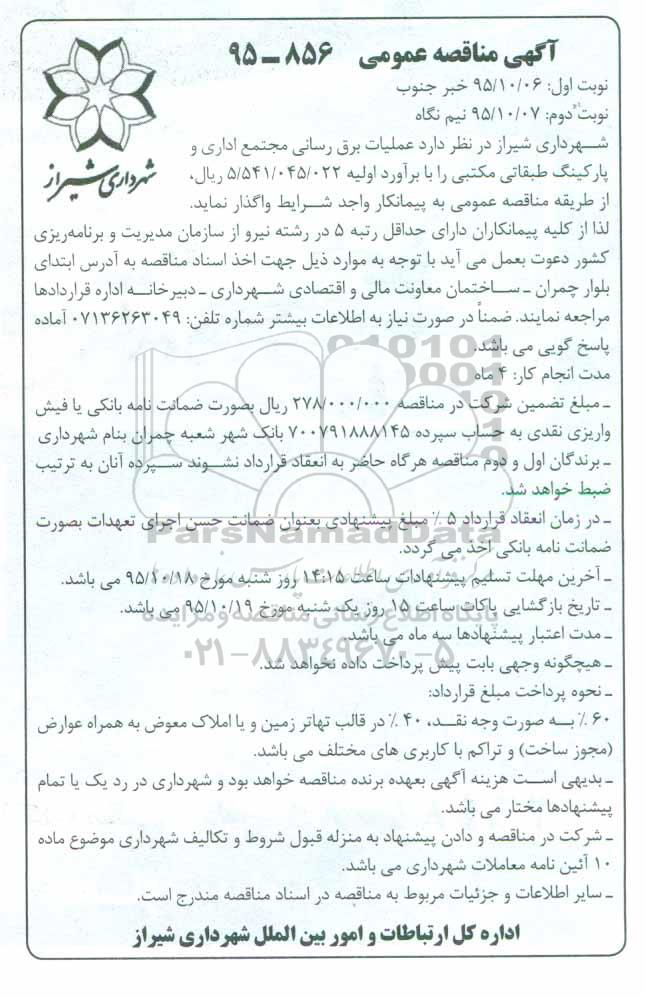 آگهی مناقصه عمومی ۸۵۶ ـ ۹۵
نوبت اول: ۹۵/۱۰/۰۶ خبر جنوب
نوبت دوم: ۹۵/۱۰/۰۷ نیم نگاه
شهرداری شیراز
شهرداری شیراز در نظر دارد عملیات برق رسانی مجتمع اداری و
پارکینگ طبقاتی مکتبی را با برآورد اولیه ۵/۵۴۱/۰۴۵/۰۲۲ ریال،
از طریقه مناقصه عمومی به پیمانکار واجد شرایط واگذار نماید.
لذا از کلیه پیمانکاران دارای حداقل رتبه ۵ در رشته نیرو از سازمان مدیریت و برنامه‌ریزی
کشور دعوت بعمل می آید با توجه به موارد ذیل جهت اخذ اسناد مناقصه به آدرس ابتدای
بلوار چمران ـ ساختمان معاونت مالی و اقتصادی شهرداری ـ دبیرخانه اداره قراردادها
مراجعه نمایند. ضمناً در صورت نیاز به اطلاعات بیشتر شماره تلفن: ۰۷۱۳۶۲۶۳۰۴۹ آماده
پاسخ گویی می باشد.
مدت انجام کار: ۴ ماه
ـ مبلغ تضمین شرکت در مناقصه ۲۷۸/۰۰۰/۰۰۰ ریال بصورت ضمانت نامه بانکی یا فیش
واریزی نقدی به حساب سپرده ۷۰۰۷۹۱۸۸۸۱۴۵ بانک شهر شعبه چمران بنام شهرداری
ـ برندگان اول و دوم مناقصه هرگاه حاضر به انعقاد قرارداد نشوند سپرده آنان به ترتیب
ضبط خواهد شد.
ـ در زمان انعقاد قرارداد ۵ ٪ مبلغ پیشنهادی بعنوان ضمانت حسن اجرای تعهدات بصورت
ضمانت نامه بانکی اخذ می گردد.
ParsNamadData
ـ آخرین مهلت تسلیم پیشنهادات ساعت ۱۴:۱۵ روز شنبه مورخ ۹۵/۱۰/۱۸ می باشد.
ـ تاریخ بازگشایی پاکات ساعت ۱۵ روز یک شنبه مورخ ۹۵/۱۰/۱۹ می باشد.
پایگاه اطلاع رسانی مناقصه و مزایده
ـ مدت اعتبار پیشنهادها سه ماه می باشد.
۰۲۱-۸۸۳۴۹۶۷۰-۵
ـ هیچگونه وجهی بابت پیش پرداخت داده نخواهد شد.
ـ نحوه پرداخت مبلغ قرارداد:
۶۰ ٪ به صورت وجه نقد، ۴۰ ٪ در قالب تهاتر زمین و یا املاک معوض به همراه عوارض
(مجوز ساخت) و تراکم با کاربری های مختلف می باشد.
ـ بدیهی است هزینه آگهی بعهده برنده مناقصه خواهد بود و شهرداری در رد یک یا تمام
پیشنهادها مختار می باشد.
ـ شرکت در مناقصه و دادن پیشنهاد به منزله قبول شروط و تکالیف شهرداری موضوع ماده
۱۰ آئین نامه معاملات شهرداری می باشد.
ـ سایر اطلاعات و جزئیات مربوط به مناقصه در اسناد مناقصه مندرج است.
اداره کل ارتباطات و امور بین الملل شهرداری شیراز